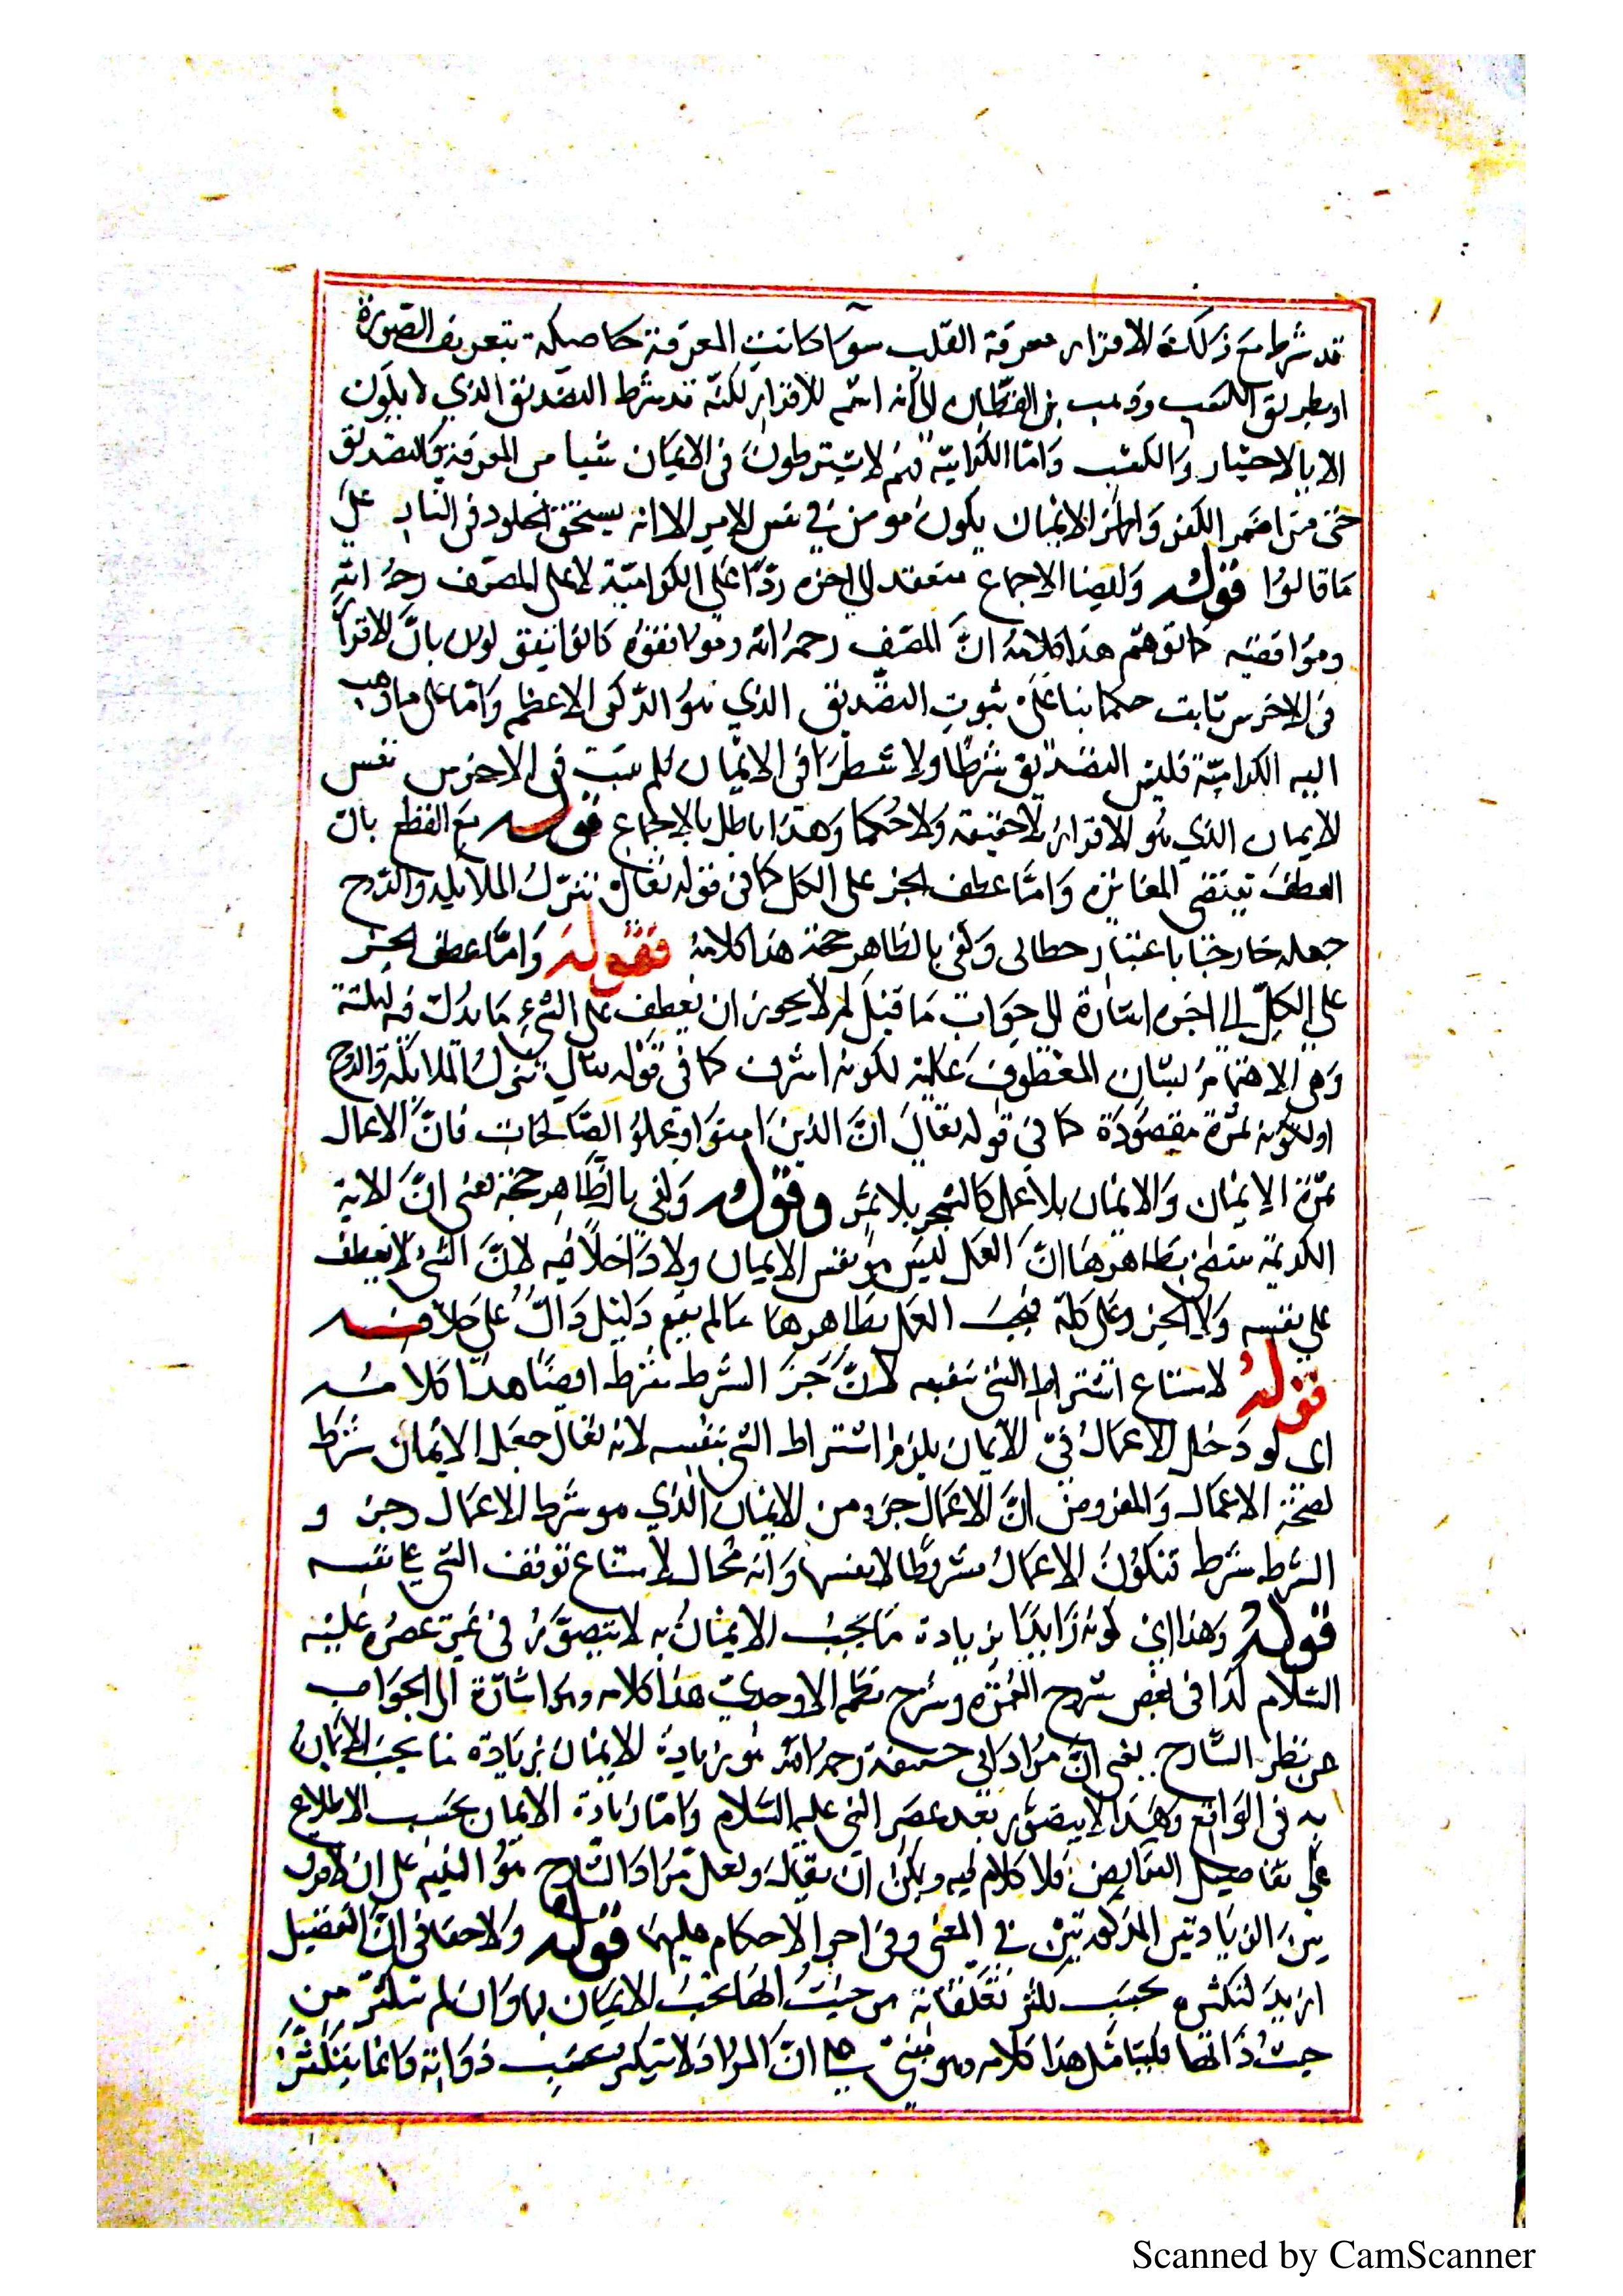 قد شرط مع ذلك الاقرار معرفة القلب سواء كانت المعرفة حاصلة بتعريف الصورة
او بطريق الكسب وذهب بن القطان الى انه اسم للاقرار لكنه قد شرط التصديق الذي لا يكون
الا بالاختيار والكسب واما الكرامية فهم لا يشترطون في الايمان شيا من المعرفة والتصديق
حتى من اضمر الكفر واظهر الايمان يكون مومن في نفس الامر الا انه يستحق الخلود في النار على
ما قالوا قوله وايضا الاجماع منعقد الى اخره ردا على الكرامية لا على المصنف رحمه الله
وموافقيه كما توهم هذا كلامه انّ المصنف رحمه الله وموافقوه كانوا يقولون بانّ الاقرار
في الاخرس ثابت حكما بناء على ثبوت التصديق الذي هو الركن الاعظم وامّا على ما ذهب
اليه الكرامية فليس التصديق شرطا ولا شطرا في الايمان فلم يثبت في الاخرس نفس
الايمان الذي هو الاقرار لا حقيقة ولا حكما وهذا باطل بالاجماع قوله مع القطع بان
العطف يقتضي المغائرة وامّا عطف الجزء على الكل كما في قوله تعالى تنزل الملائكة والروح
جعله خارجا باعتبار خطابى وكفى بالظاهر حجة هذا كلامه فقوله وامّا عطف الجزء
على الكلّ الى اخره اشارة الى جواب ما قيل لم لا يجوز ان يعطف على الشيء ما يدل فيه لنكتة
وهى الاهتمام لبيان المعطوف عليه لكونه اشرف كما في قوله تعالى تنزل الملائكة والروح
او لكونه ثمرة مقصودة كما في قوله تعالى انّ الذين امنوا وعملوا الصالحات فانّ الاعمال
ثمرة الايمان والايمان بلا عمل كالشجر بلا ثمر وقوله وكفى بالظاهر حجة يعنى انّ الاية
الكريمة تقتضى بظاهرها انّ العمل ليس من نفس الايمان ولا داخلا فيه لانّ الشئ لا يعطف
على نفسه ولا الجزء على كله فيجب العمل بظاهرها ما لم يقم دليل دالّ على خلافه
قوله لامتناع اشتراط الشئ بنفسه لانّ جزء الشرط شرط ايضا هذا كلامه
اى لو دخل الاعمال في الايمان يلزم اشتراط الشئ بنفسه لانه تعالى جعل الايمان شرط
لصحة الاعمال والمفروض انّ الاعمال جزء من الايمان الذي هو شرط الاعمال وجزء
الشرط شرط فتكون الاعمال مشروطا لانفسها وانه محال لامتناع توقف الشئ على نفسه
قوله وهذا اي كونه زايدا بزيادة ما يجب الايمان به لا يتصوّر في غير عصره عليه
السلام كذا في بعض شروح العمدة وشرح نظم الاوحدى هذا كلامه وهو اشارة الى الجواب
عن نظر الشارح يعنى انّ مراد ابي حنيفة رحمه الله هو زيادة الايمان بزيادة ما يجب الايمان
به في الواقع وهذا لا يتصور بعد عصر النبي عليه السلام وامّا زيادة الايمان بحسب الاطلاع
على تفاصيل الفرايض فلا كلام فيه ويمكن ان يقال ولعل مراد الشارح هو التنبيه على ان لا فرق
بين الزيادتين المذكورتين في المعنى وفي اجراء الاحكام عليها قوله ولا خفاء في انّ التفصيل
ازيد لتكثره بحسب تكثر تعلقاته من حيث انها يجب الايمان بها وان لم تتكثر من
حيث ذاتها فليتامل هذا كلامه وهو مبنى على انّ المراد لا يتكثر بحسب ذواته وانما يتكثر
Scanned by CamScanner